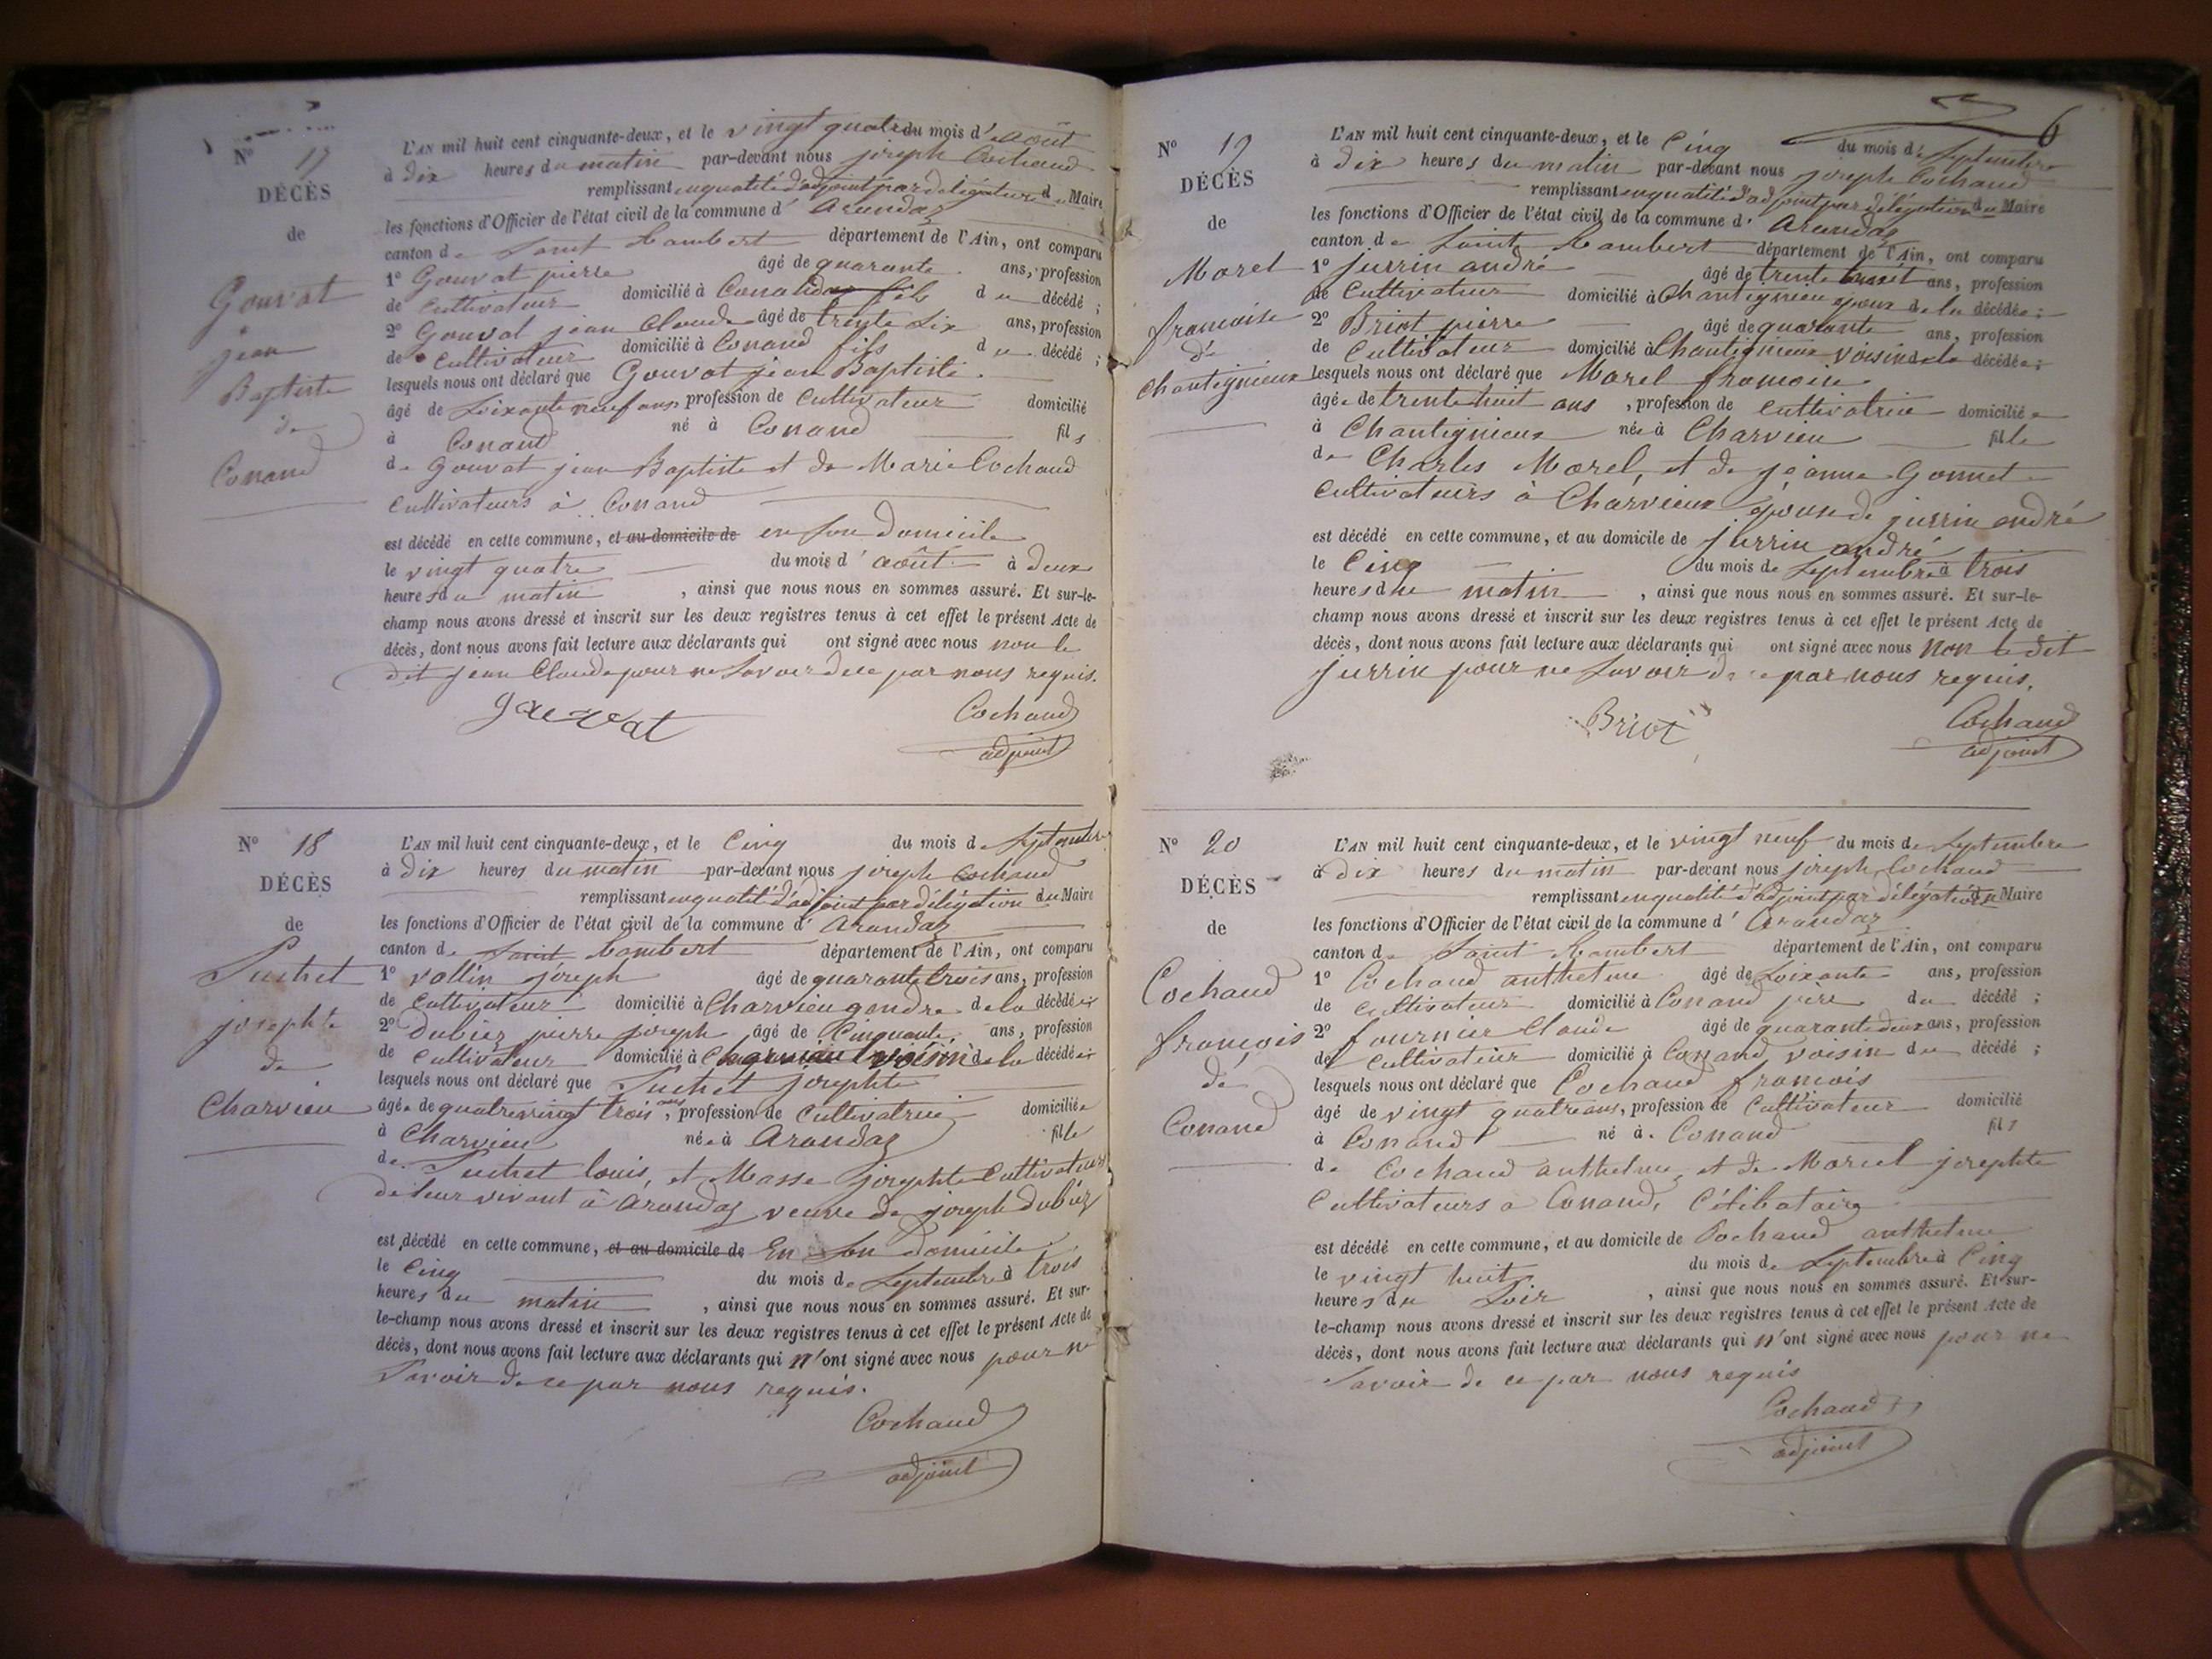 N° 17
DÉCÈS
de
Gouvat
jean
Baptiste
de
Conand
L'AN mil huit cent cinquante-deux, et le vingt quatre du mois d'août
à dix heures du matin par-devant nous joseph Cochaud
remplissant en qualité d'adjoint par délégation du Maire
les fonctions d'Officier de l'état civil de la commune d'Arandaz
canton de Saint Rambert département de l'Ain, ont comparu
1° Gouvat pierre âgé de quarante ans, profession
de Cultivateur domicilié à Conand fils du décédé ;
2° Gouvat jean Claude âgé de trente six ans, profession
de Cultivateur domicilié à Conand fils du décédé ;
lesquels nous ont déclaré que Gouvat jean Baptiste
âgé de soixante neuf ans profession de Cultivateur domicilié
à Conand né à Conand fils
de Gouvat jean Baptiste et de Marie Cochaud
Cultivateurs à Conand
est décédé en cette commune, et au domicile de en son domicile
le vingt quatre du mois d'août à deux
heures du matin, ainsi que nous nous en sommes assuré. Et sur-le-
champ nous avons dressé et inscrit sur les deux registres tenus à cet effet le présent Acte de
décès, dont nous avons fait lecture aux déclarants qui ont signé avec nous non le
dit jean Claude pour ne savoir de ce par nous requis.
gauvat Cochaud
adjoint
N° 18
DÉCÈS
de
Suchet
josephte
de
Charvieu
L'AN mil huit cent cinquante-deux, et le Cinq du mois de Septembre
à dix heures du matin par-devant nous joseph Cochaud
remplissant en qualité d'adjoint par délégation du Maire
les fonctions d'Officier de l'état civil de la commune d'Arandaz
canton de Saint Rambert département de l'Ain, ont comparu
1° Vallin joseph âgé de quarante trois ans, profession
de Cultivateur domicilié à Charvieu gendre de la décédée ;
2° Dubiez pierre joseph âgé de Cinquante ans, profession
de Cultivateur domicilié à Charvieu voisin de la décédée ;
lesquels nous ont déclaré que Suchet josephte
âgée de quatre vingt trois ans, profession de Cultivatrice domiciliée
à Charvieu née à Arandaz fille
de Suchet louis, et Masse josephte Cultivateurs
de leur vivant à Arandaz veuve de joseph dubiez
est décédé en cette commune, et au domicile de En Son domicile
le Cinq du mois de Septembre à trois
heures du matin, ainsi que nous nous en sommes assuré. Et sur-
le-champ nous avons dressé et inscrit sur les deux registres tenus à cet effet le présent Acte de
décès, dont nous avons fait lecture aux déclarants qui n'ont signé avec nous pour ne
Savoir de ce par nous requis.
Cochaud
adjoint
6
N° 19
DÉCÈS
de
Morel
francoise
de
Chantignieux
L'AN mil huit cent cinquante-deux, et le Cinq du mois de Septembre
à dix heures du matin par-devant nous joseph Cochaud
remplissant en qualité d'adjoint par délégation du Maire
les fonctions d'Officier de l'état civil de la commune d'Arandaz
canton de Saint Rambert département de l'Ain, ont comparu
1° jurrin andré âgé de trente huit ans, profession
de Cultivateur domicilié à Chantignieu époux de la décédée ;
2° Briot pierre âgé de quarante ans, profession
de Cultivateur domicilié à Chantignieux voisin de la décédée ;
lesquels nous ont déclaré que Morel francoise
âgée de trente huit ans, profession de Cultivatrice domiciliée
à Chantignieux née à Charvieu fille
de Charles Morel, et de jeanne Gonnet
Cultivateurs à Charvieux épouse de jurrin andré
est décédé en cette commune, et au domicile de jurrin andré
le Cinq du mois de Septembre à trois
heures du matin, ainsi que nous nous en sommes assuré. Et sur-le-
champ nous avons dressé et inscrit sur les deux registres tenus à cet effet le présent Acte de
décès, dont nous avons fait lecture aux déclarants qui ont signé avec nous Non le dit
jurrin pour ne savoir de ce par nous requis.
Briot Cochaud
adjoint
N° 20
DÉCÈS
de
Cochaud
françois
de
Conand
L'AN mil huit cent cinquante-deux, et le vingt neuf du mois de Septembre
à dix heures du matin par-devant nous joseph Cochaud
remplissant en qualité d'adjoint par délégation du Maire
les fonctions d'Officier de l'état civil de la commune d'Arandaz
canton de Saint Rambert département de l'Ain, ont comparu
1° Cochaud anthelme âgé de soixante ans, profession
de Cultivateur domicilié à Conand père du décédé ;
2° fournier Claude âgé de quarante deux ans, profession
de Cultivateur domicilié à Conand voisin du décédé ;
lesquels nous ont déclaré que Cochaud francois
âgé de vingt quatre ans, profession de Cultivateur domicilié
à Conand né à Conand fils
de Cochaud anthelme, et de Morel josephte
Cultivateurs a Conand, Célibataire
est décédé en cette commune, et au domicile de Cochaud anthelme
le vingt huit du mois de Septembre à Cinq
heures du Soir, ainsi que nous nous en sommes assuré. Et sur-
le-champ nous avons dressé et inscrit sur les deux registres tenus à cet effet le présent Acte de
décès, dont nous avons fait lecture aux déclarants qui n'ont signé avec nous pour ne
Savoir de ce par nous requis
Cochaud
adjoint